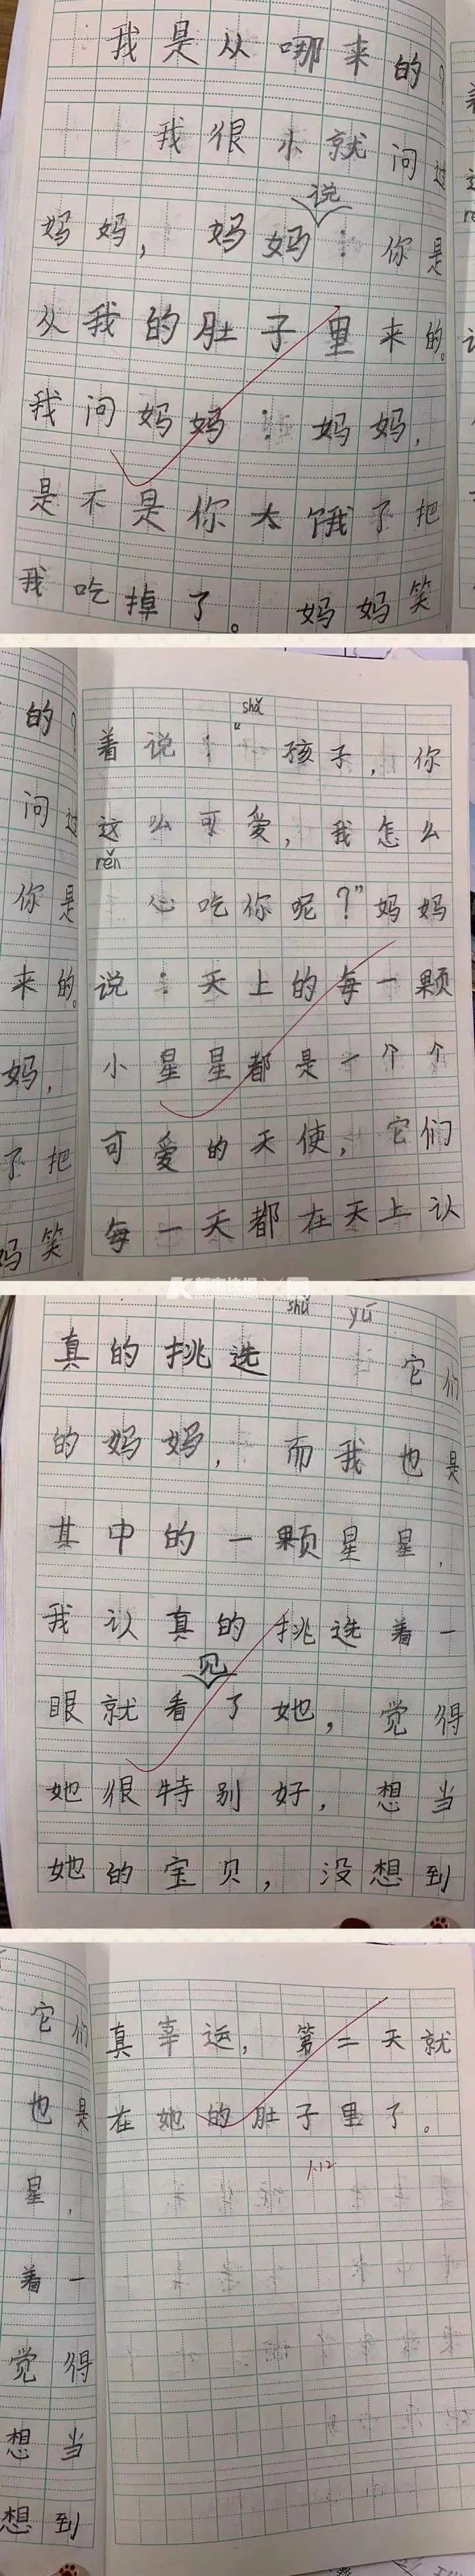 我是从哪来的？
我很小就问过
说
妈妈，妈妈：你是
从我的肚子里来的。
我问妈妈：妈妈，
是不是你太饿了把
我吃掉了。妈妈笑
的？
问过
你是
来的。
妈，
了把
妈笑
shǎ
着说：“孩子，你
这么可爱，我怎么
rěn
心吃你呢？”妈妈
说：天上的每一颗
小星星都是一个个
可爱的天使，它们
每一天都在天上认
都市快报
shǔ yú
真的挑选 它们
的妈妈，而我也是
其中的一颗星星，
我认真的挑选着一
见
眼就看了她，觉得
她很特别好，想当
她的宝贝，没想到
它们
也是
星，
着一
觉得
想当
想到
真幸运，第二天就
在她的肚子里了。
1.12